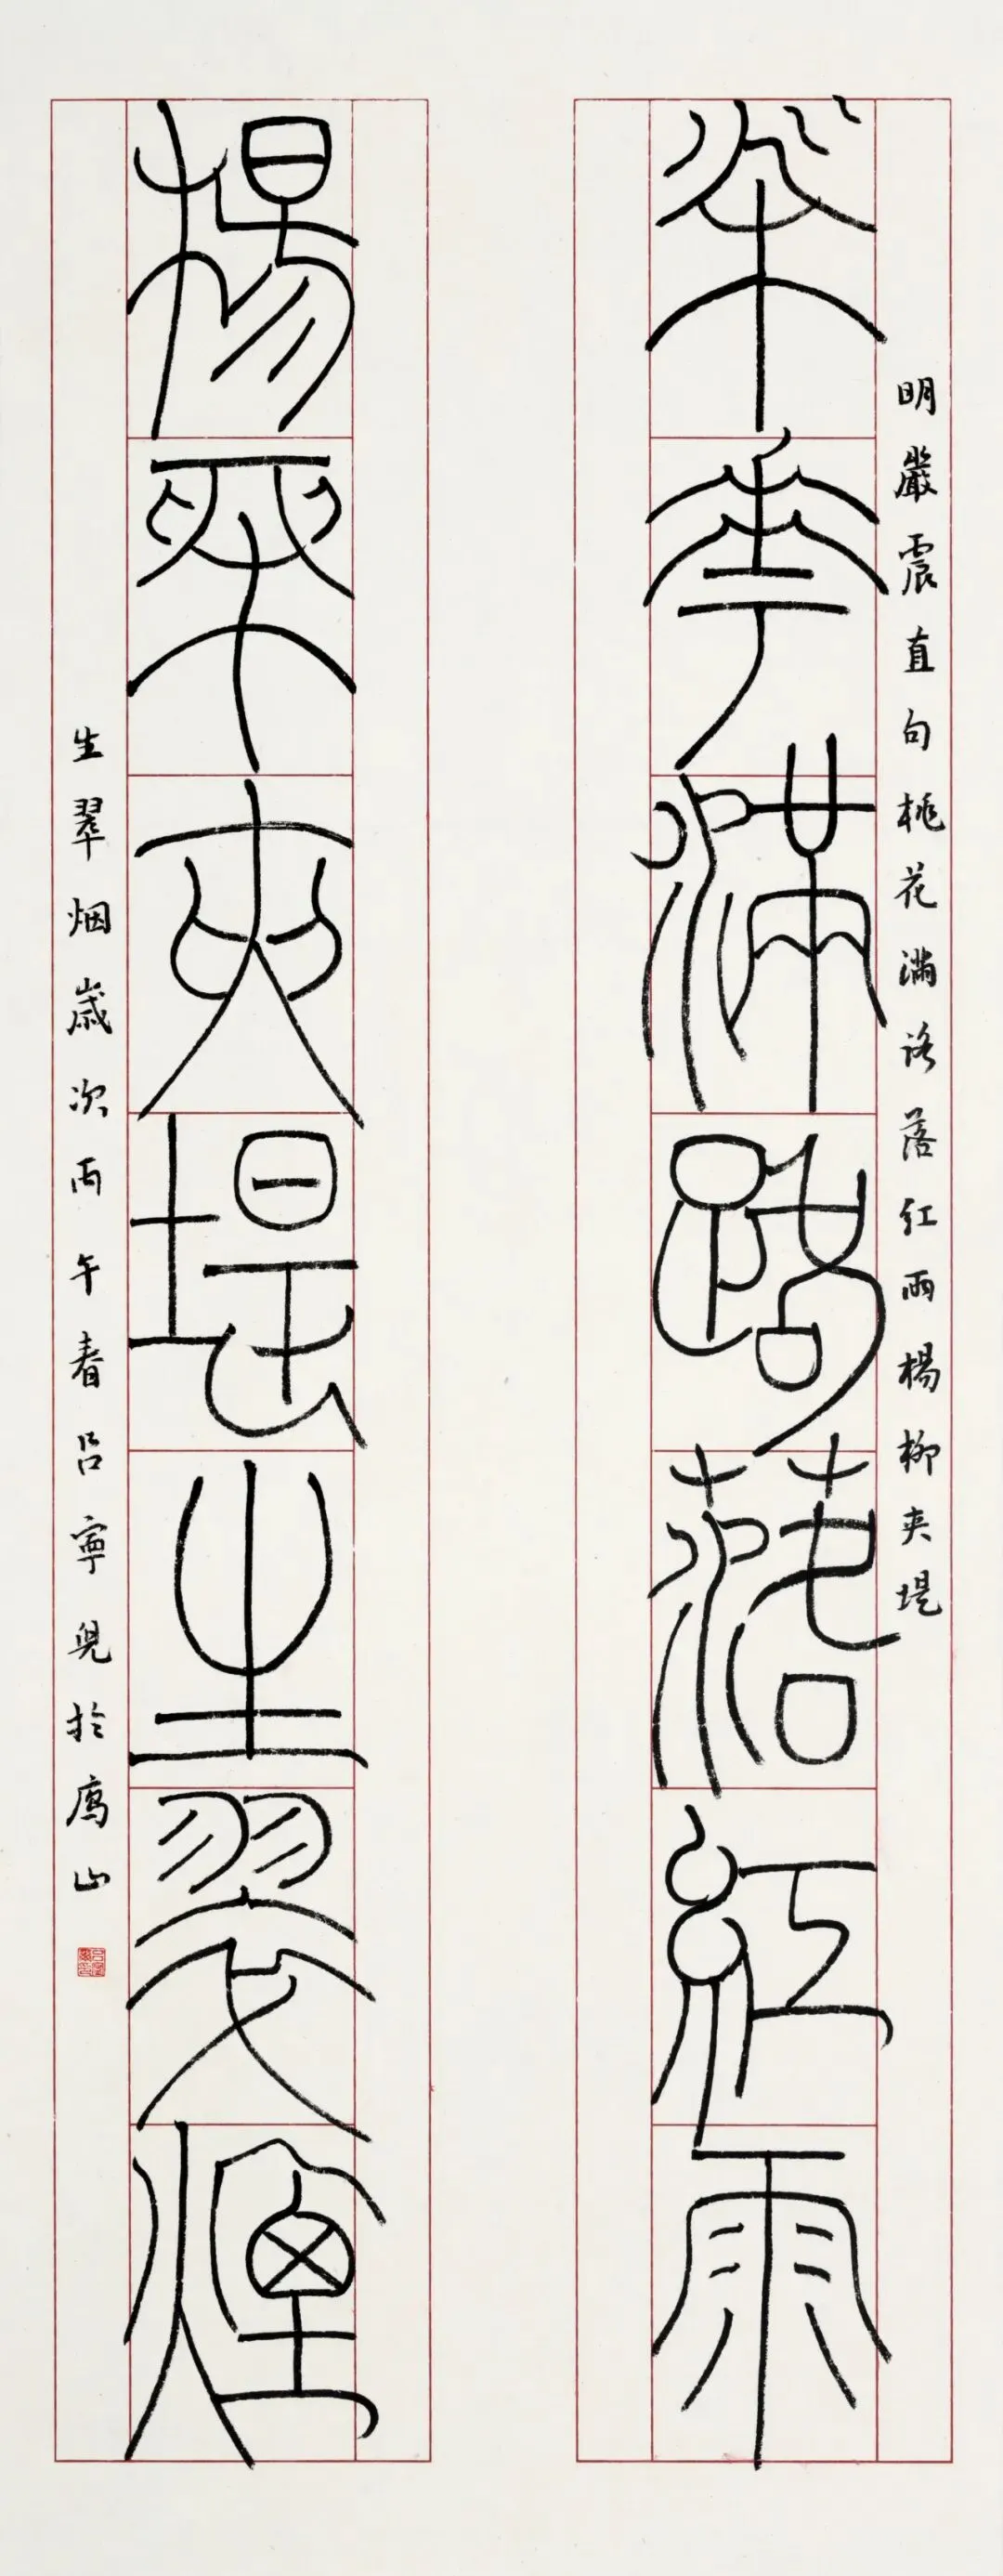 桃華滿路落紅雨
明嚴震直句桃花滿路落红雨楊柳夹堤
楊桺夾堤生翠煙
生翠烟歲次丙午春呂寧兒於廌山